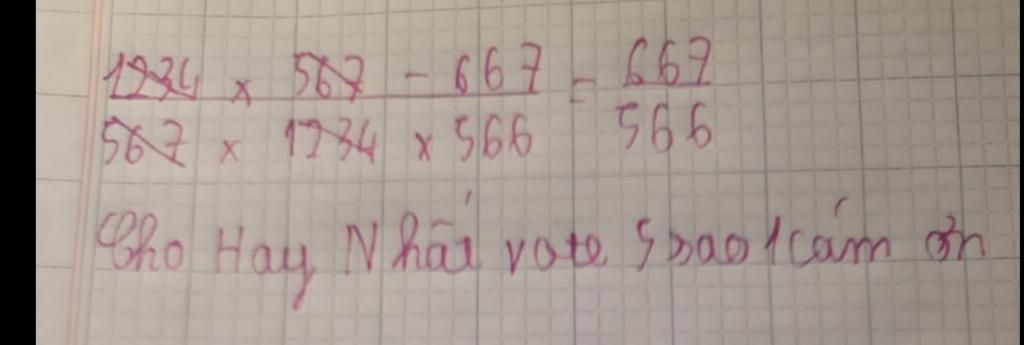 1234 × 567 - 667 = 667
567 × 1234 × 566 566
Cho Hay Nhất vote 5 sao 1 cám ơn